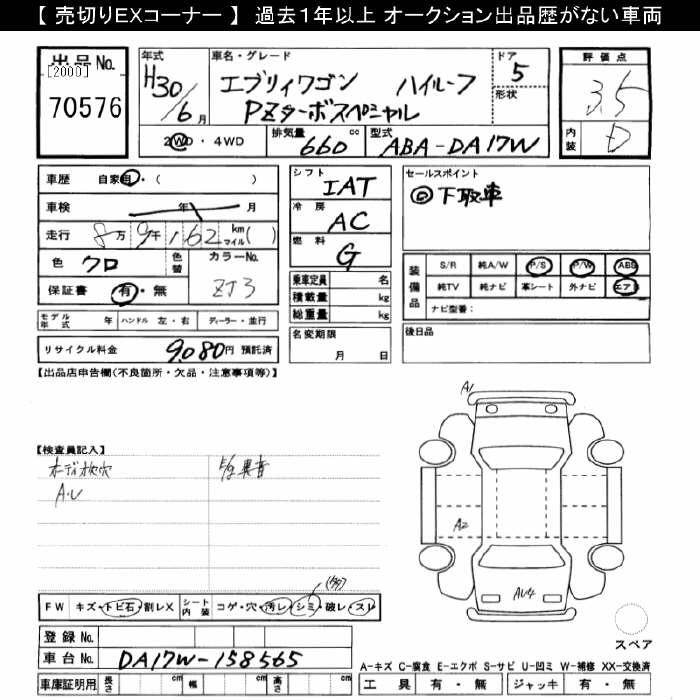 【 売切りEXコーナー 】 過去１年以上 オークション出品歴がない車両
出品No.
[2000]
70576
年式
H30/6月
車名・グレード
エブリィワゴン ハイルーフ
PZターボスペシャル
ドア
5
形状
2WD・4WD
排気量 660 cc
型式 ABA-DA17W
評価点
3.5
内装 D
車歴 自家用・( )
車検 年 月
走行 8万9千162 km マイル( )
色 クロ
色替
カラーNo. ZJ3
保証書 有・無
モデル年式 年 ハンドル 左・右 ディーラー・並行
リサイクル料金 9,080円 預託済
シフト IAT
冷房 AC
燃料 G
乗車定員 名
積載量 kg
総重量 kg
名変期限
月 日
セールスポイント
◎下取車
装備品
S/R 純A/W P/S P/W ABS
純TV 純ナビ 革シート 外ナビ エアB
ナビ型番:
後日品
【出品店申告欄(不良箇所・欠品・注意事項等)】
【検査員記入】
オーディオ欠
A・U
A1
A2
AU4
スペア
FW キズ・トビ石・割レX
シート内装 コゲ・穴・汚レ・シミ・破レ・スレ
登録No.
車台No. DA17W-158565
車庫証明用 長さ cm 幅 cm 高さ cm
A-キズ C-腐食 E-エクボ S-サビ U-凹ミ W-補修 XX-交換済
工具 有・無 ジャッキ 有・無